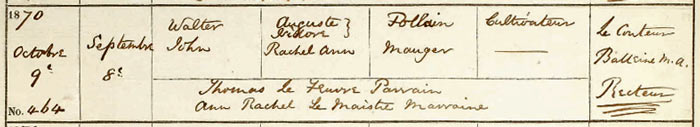 1870
Octobre
9e
No. 464
Septembre
8e
Walter
John
Auguste
Isidore
Rachel Ann
Pollain
Mauger
Cultivateur
Le Couteur
Balleine M.A.
Recteur
Thomas Le Feuvre Parrain
Ann Rachel Le Maistre Marraine